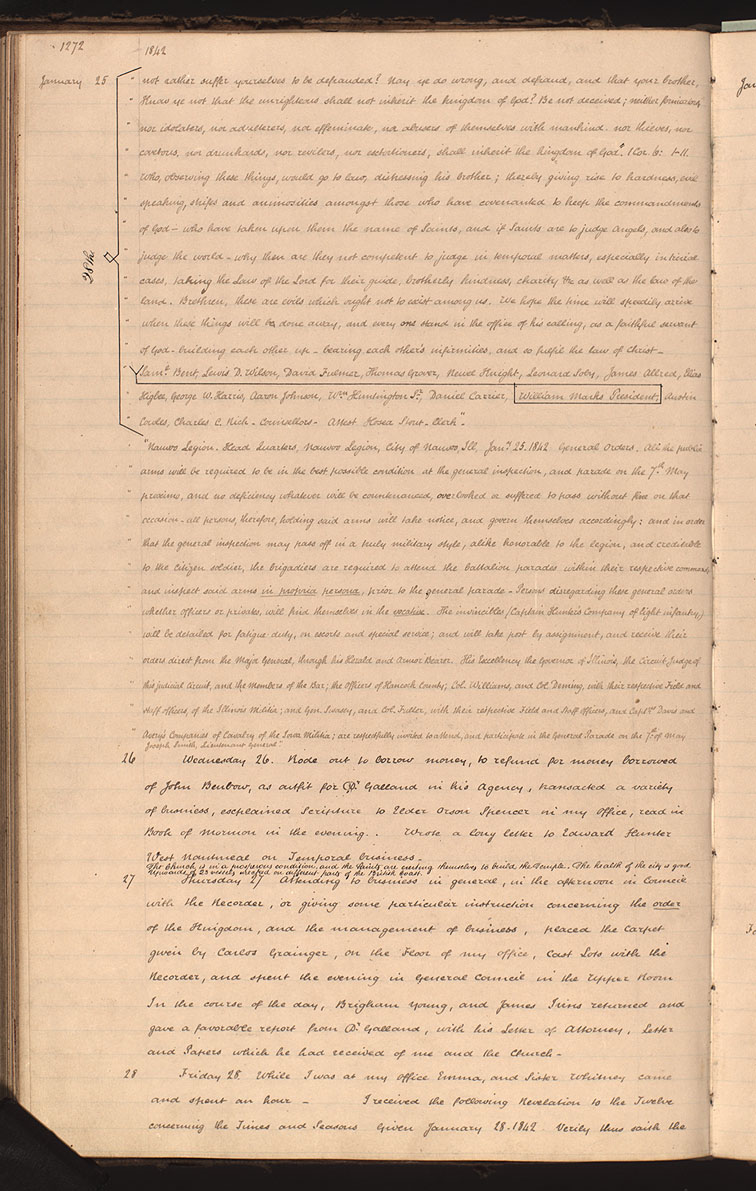 1272 1842
January 25 " not rather suffer yourselves to be defrauded? Nay ye do wrong, and defraud, and that your brother,
" Know ye not that the unrighteous shall not inherit the kingdom of God? Be not deceived; neither fornicators,
" nor idolaters, nor adulterers, nor effeminate, nor abusers of themselves with mankind. nor thieves, nor
" covetous, nor drunkards, nor revilers, nor extortioners, shall inherit the kingdom of God". 1 Cor. 6: 1-11.
" Who, observing these things, would go to law, distressing his brother; thereby giving rise to hardness, evil
" speaking, strifes and animosities amongst those who have covenanted to keep the commandments
" of God — who have taken upon them the name of Saints, and if Saints are to judge Angels, and also to
28th " judge the world — why then are they not competent to judge in temporal matters, especially in trivial
" cases, taking the Law of the Lord for their guide, brotherly kindness, charity &c as well as the law of the
" land. Brethren, these are evils which ought not to exist among us. We hope the time will speedily arrive
" when these things will be done away, and every one stand in the office of his calling, as a faithful servant
" of God — building each other up — bearing each other's infirmities, and so fulfil the law of Christ —
Sam.l Bent, Lewis D. Wilson, David Fulmer, Thomas Grover, Newel Knight, Leonard Soby, James Allred, Elias
Higbee, George W. Harris, Aaron Johnson, Wm Huntington Sr., Daniel Carrier, William Marks President, Austin
Cowles, Charles C. Rich — Counsellors — Attest Hosea Stout — Clerk".
"Nauvoo Legion. Head Quarters, Nauvoo Legion, City of Nauvoo, Ill, Jany 25. 1842 General Orders. All the public
" arms will be required to be in the best possible condition at the general inspection, and parade on the 7th May
" proximo, and no deficiency whatever will be countenanced, overlooked or suffered to pass without fine on that
" occasion — all persons, therefore, holding said arms will take notice, and govern themselves accordingly: and in order
" that the general inspection may pass off in a truly military style, alike honorable to the legion, and creditable
" to the citizen soldier, the brigadiers are required to attend the battalion parades within their respective commands,
" and inspect said arms in propria persona, prior to the general parade — Persons disregarding these general orders
" whether officers or privates, will find themselves in the vocative. The invincibles (Captain Hunter's Company of light infantry,)
" will be detailed for fatigue duty, on escorts and special service; and will take post by assignment, and receive their
" orders direct from the Major General, through his Herald and Armor Bearer. His Excellency the Governor of Illinois, the Circuit Judge of
" this judicial Circuit, and the Members of the Bar; the officers of Hancock County; Col. Williams, and Col. Deming, with their respective Field and
" staff officers, of the Illinois Militia; and Gen. Swazey, and Col. Fuller, with their respective Field and Staff officers, and Capts Davis and
" Avery's Companies of Cavalry of the Iowa Militia; are respectfully invited to attend, and participate in the General Parade on the 7th of May
Joseph Smith, Lieutenant General."
26 Wednesday 26. Rode out to borrow money, to refund for money borrowed
of John Benbow, as outfit for Dr Galland in his Agency, transacted a variety
of business, explained Scripture to Elder Orson Spencer in my office, read in
Book of Mormon in the evening.. Wrote a long letter to Edward Hunter
West Nantmeal on Temporal business.
The church is in a prosperous condition, and the Saints are exerting themselves to build the Temple. The health of the city is good.
Upwards of 23 vessels wrecked on different parts of the British Coast.
27 Thursday 27 Attending to business in general, in the afternoon in Council
with the Recorder, or giving some particular instruction concerning the order
of the Kingdom, and the management of business, placed the carpet
given by Carlos Grainger, on the Floor of my office, Cast Lots with the
Recorder, and spent the evening in General Council in the Upper Room
In the course of the day, Brigham Young, and James Ivins returned and
gave a favorable report from Dr Galland, with his Letter of Attorney, Letter
and Papers which he had received of me and the Church —
28 Friday 28. While I was at my office Emma, and Sister Whitney came
and spent an hour — I received the following Revelation to the Twelve
concerning the Times and Seasons Given January 28. 1842 Verily thus saith the